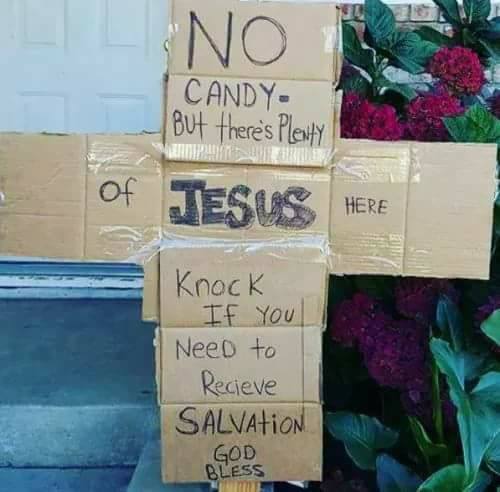 NO
CANDY-
BUT there's PLENTY
OF JESUS HERE
Knock
IF YOU
NEED to
Recieve
SALVATION
GOD
BLESS